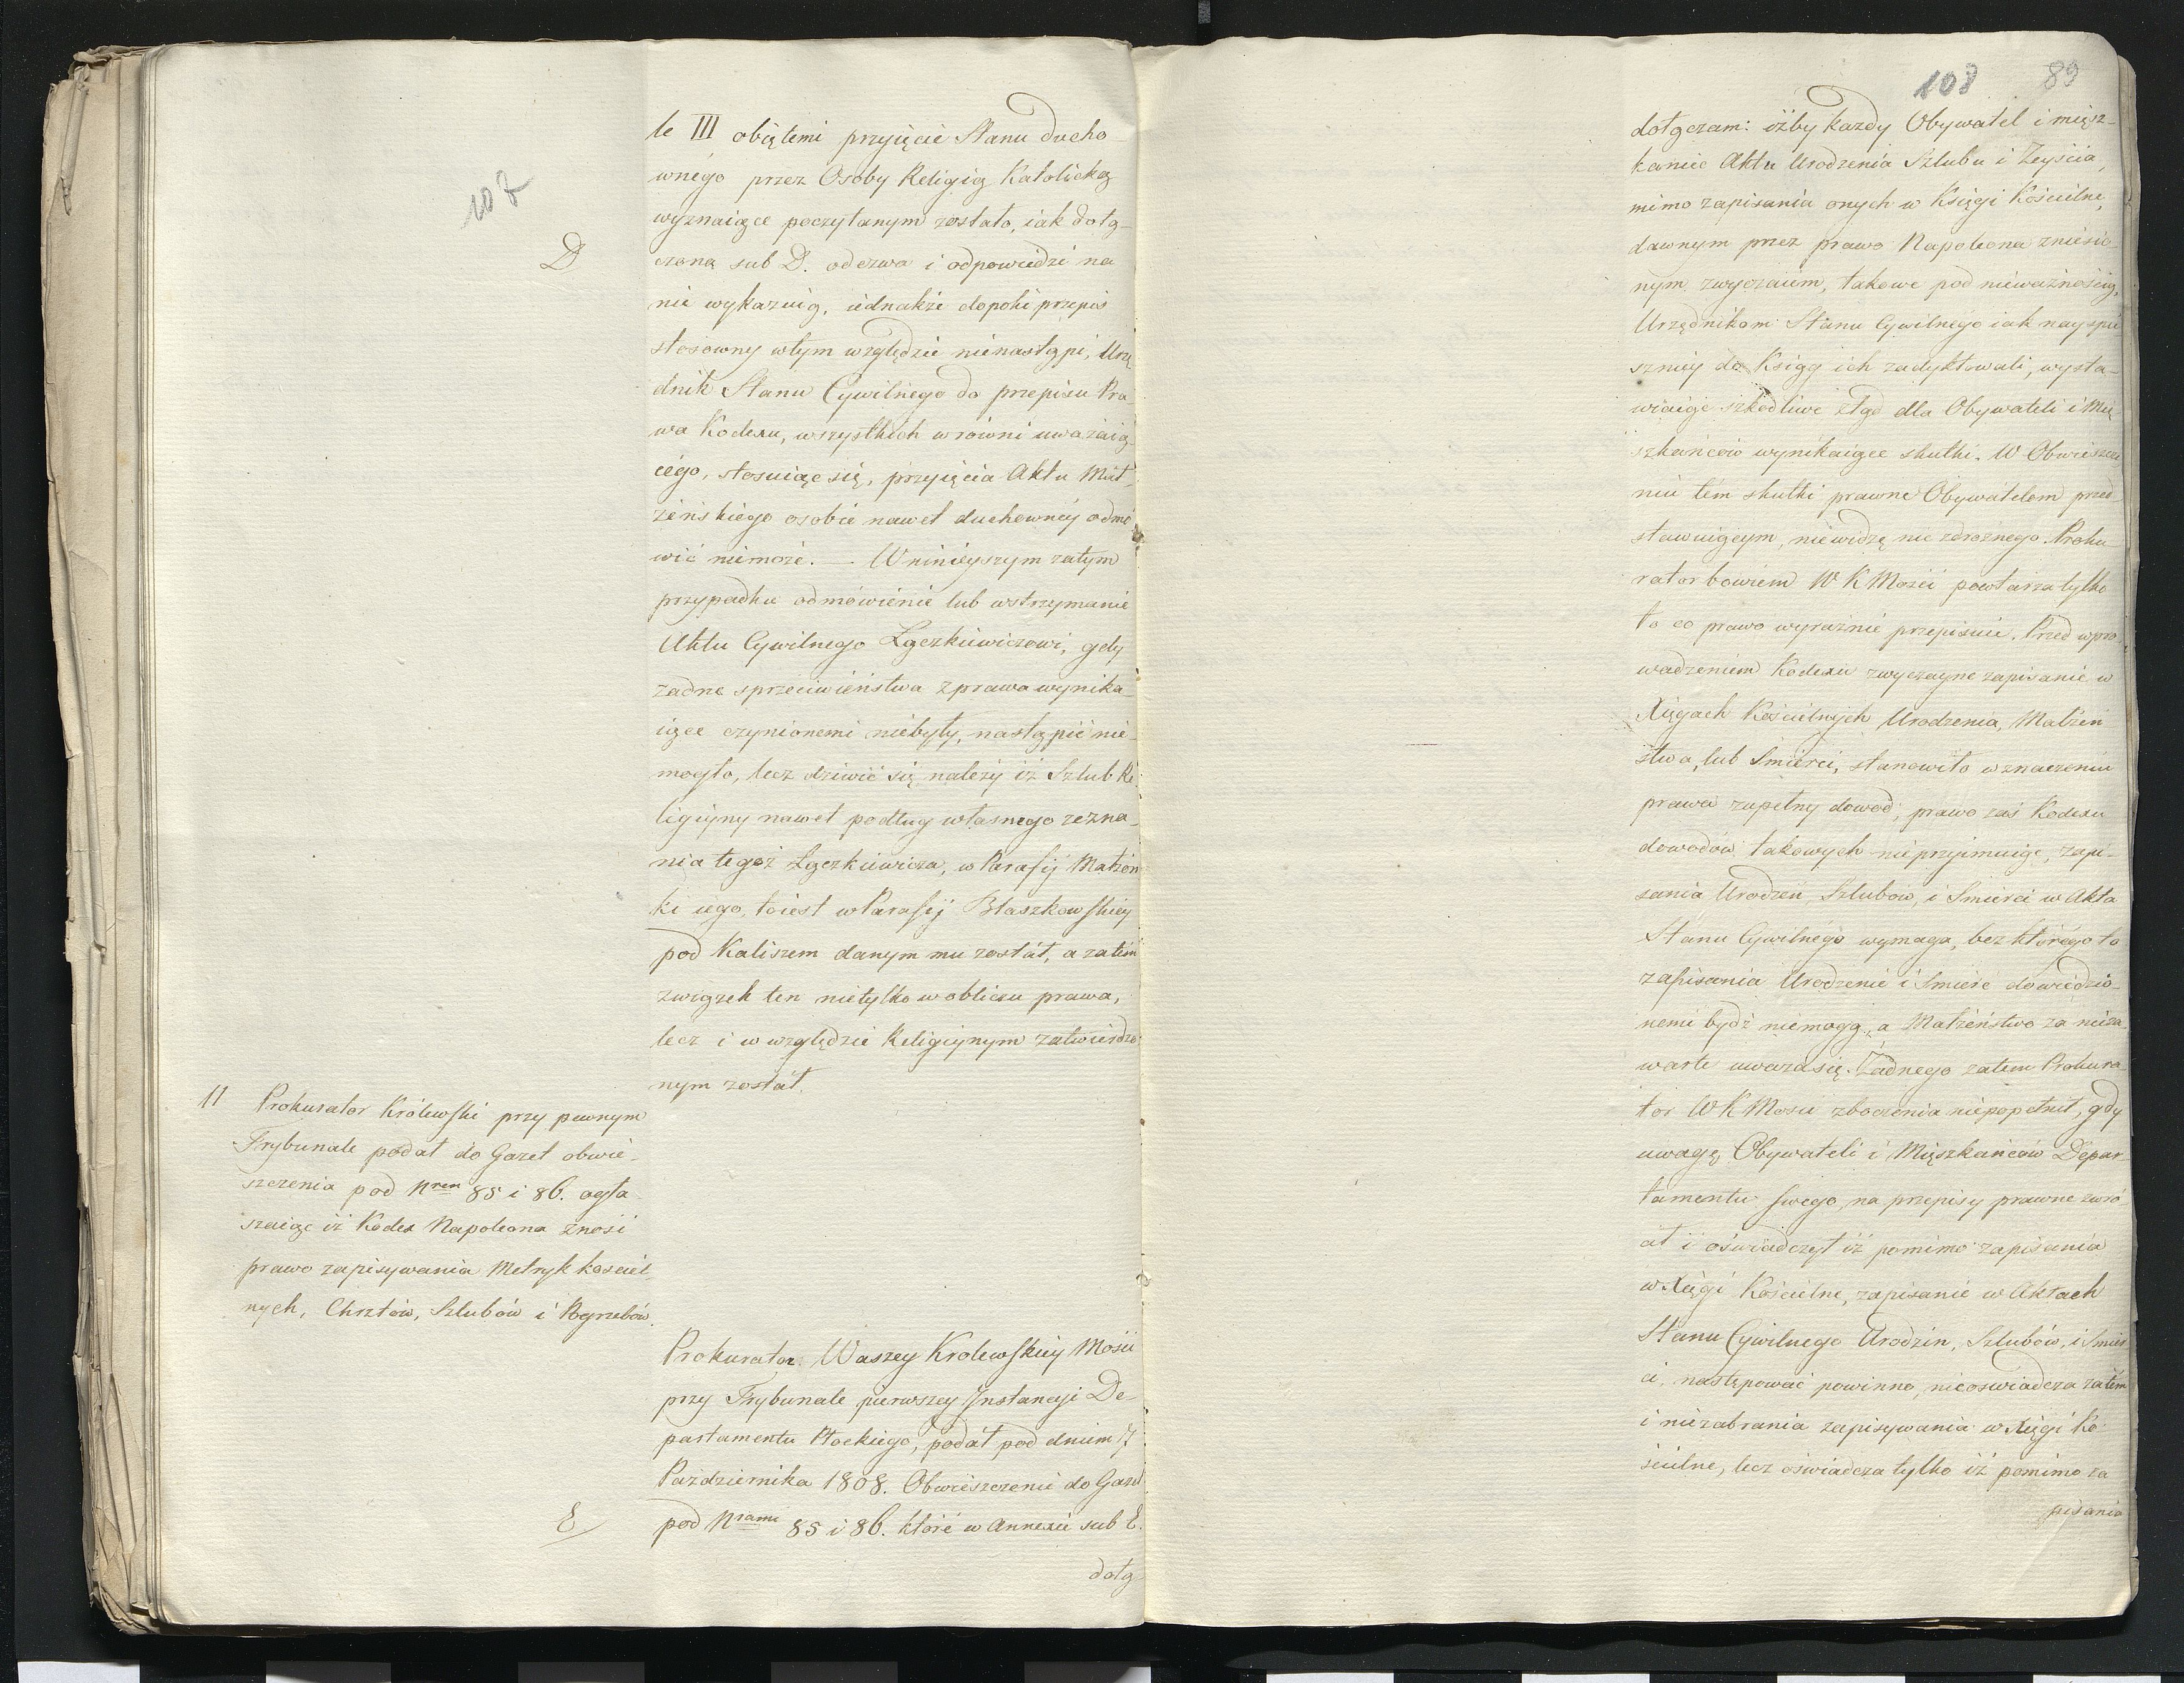 107
D
le III obiętemi przyięcie Stanu ducho-
wnégo przez Osoby Religią Katolicką
wyznaiące poczytanym zostało, iak dołą-
czona sub D. odezwa i odpowiedzi na
nię wykazuią, iednakże dopóki przepis
stosowny wtym względzie nienastąpi, Urzę
dnik Stanu Cywilnégo do przepisu Pra-
wa Kodexu, wszystkich w równi uważaią-
cégo, stosuiąc się, przyięcia Aktu Mał-
żeńskiégo osobie nawet duchownéy odmó
wić niemoże. — W ninieyszym zatym
przypadku odmówienie lub wstrzymanie
Aktu Cywilnego Łączkiewiczowi, gdy
żadne sprzeciwieństwa z prawa wynika-
iące czynionemi niebyły, nastąpić nie-
mogło, lecz dziwić się należy iż Szlub Re-
ligiyny nawet podług własnego zezna-
nia tegoż Łączkiewicza, w Parafij Małżon-
ki iego, toiest w Parafij Błaszkowskiey
pod Kaliszem danym mu został, a zatém
związek ten nietylko w obliczu prawa,
lecz i w względzie Religiynym zatwierdzo-
nym został.
11 Prokurator Królewski przy pewnym
Trybunale podał do Gazet obwie-
szczenia pod Nrem 85 i 86. ogła-
szaiąc iż Kodex Napoleona znosi
prawo zapisywania Metryk kościel-
nych, Chrztów, Szlubów i Pogrzebów.
Prokurator Waszey Królewskiéy Mości
przy Trybunale pierwszey Instancyi De-
partamentu Płockiego, podał pod dniem 7
Października 1808. Obwieszczenie do Gazet
E
pod Nrami 85 i 86. które w Annexie sub E.
dołą-
108 89
dołączam: iżby każdy Obywatel i miesz-
kaniec Aktu Urodzenia Szlubu i Zeyścia,
mimo zapisania onych w Księgi Kościelne,
dawnym przez prawo Napoleona zniesio-
nym zwyczaiem, takowe pod nieważnością,
Urzędnikom Stanu Cywilnégo iak nayspie
szniey do Ksiąg ich zadyktowali, wysta-
wiaiąc szkodliwe ztąd dla Obywateli i Mie-
szkańców wynikaiące skutki. W Obwieszcze
niu tém skutki prawne Obywatelom przed-
stawuiącym, niewidzę nic zdrożnego. Proku-
rator bowiem W K Mości powtarza tylko
to co prawo wyraźnie przepisuie. Przed wpro-
wadzeniem Kodexu zwyczayne zapisanie w
Xięgach Kościelnych Urodzenia, Małżeń-
stwa, lub Śmierci, stanowiło w znaczeniu
prawa zupełny dowód; prawo zaś Kodexu
dowodów takowych nieprzyimuiąc, zapi-
sania Urodzeń, Szlubów, i Śmierci w Akta
Stanu Cywilnégo wymaga, bez którégo to
zapisania Urodzenie i Śmierć dowiedzio-
nemi bydź niemogą, a Małżeństwo za nieza-
warte uważa się. Żadnego zatem Prokura-
tor W K Mości zboczenia niepopełnił, gdy
uwagę Obywateli i Mieszkańców Depar-
tamentu swego, na przepisy prawne zwró-
cił i oświadczył iż pomimo zapisania
w Xięgi Kościelne, zapisanie w Aktach
Stanu Cywilnego Urodzin, Szlubów, i Śmier
ci, następować powinno, nieoświadcza zatém
i niezabrania zapisywania w Xięgi Ko-
ścielne, lecz oświadcza tylko iż pomimo za
pisania